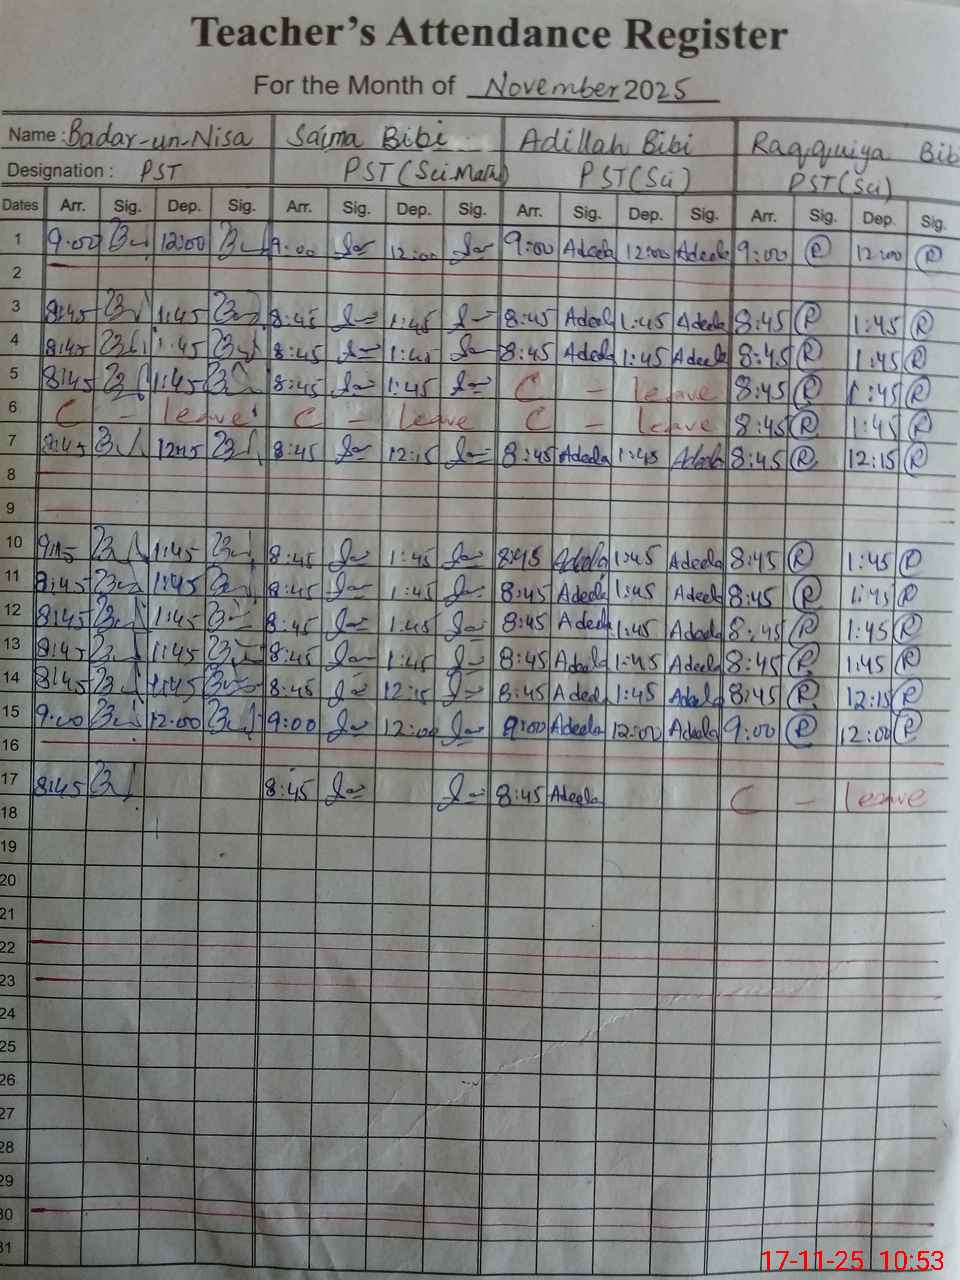 Teacher's Attendance Register
For the Month of November 2025
Name : Badar-un-Nisa Saima Bibi Adillah Bibi Raqquiya Bib
Designation : PST PST (Sci.Math) PST (Sci) PST (Sci)
Dates Arr. Sig. Dep. Sig. Arr. Sig. Dep. Sig. Arr. Sig. Dep. Sig. Arr. Sig. Dep. Sig.
1 9:00 12:00 9:00 12:00 9:00 Adeela 12:00 Adeela 9:00 R 12:00 R
2
3 8:45 1:45 8:45 1:45 8:45 Adeela 1:45 Adeela 8:45 R 1:45 R
4 8:45 1:45 8:45 1:45 8:45 Adeela 1:45 Adeela 8:45 R 1:45 R
5 8:45 1:45 8:45 1:45 C - leave 8:45 R 1:45 R
6 C - leave C - leave C - leave 8:45 R 1:45 R
7 8:45 12:15 8:45 12:15 8:45 Adeela 1:45 Adeela 8:45 R 12:15 R
8
9
10 9:15 1:45 8:45 1:45 8:45 Adeela 1:45 Adeela 8:45 R 1:45 R
11 8:45 1:45 8:45 1:45 8:45 Adeela 1:45 Adeela 8:45 R 1:45 R
12 8:45 1:45 8:45 1:45 8:45 Adeela 1:45 Adeela 8:45 R 1:45 R
13 8:45 1:45 8:45 1:45 8:45 Adeela 1:45 Adeela 8:45 R 1:45 R
14 8:45 1:45 8:45 12:15 8:45 Adeela 1:45 Adeela 8:45 R 12:15 R
15 9:00 12:00 9:00 12:00 9:00 Adeela 12:00 Adeela 9:00 R 12:00 R
16
17 8:45 8:45 8:45 Adeela C - leave
18
19
20
21
22
23
24
25
26
27
28
29
30
31
17-11-25 10:53